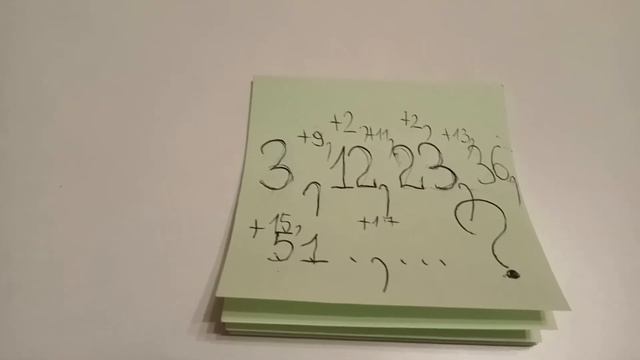 +9, +2, +11, +2, +13,
3, 12, 23, 36,
+15, +17
51 .., ... ?